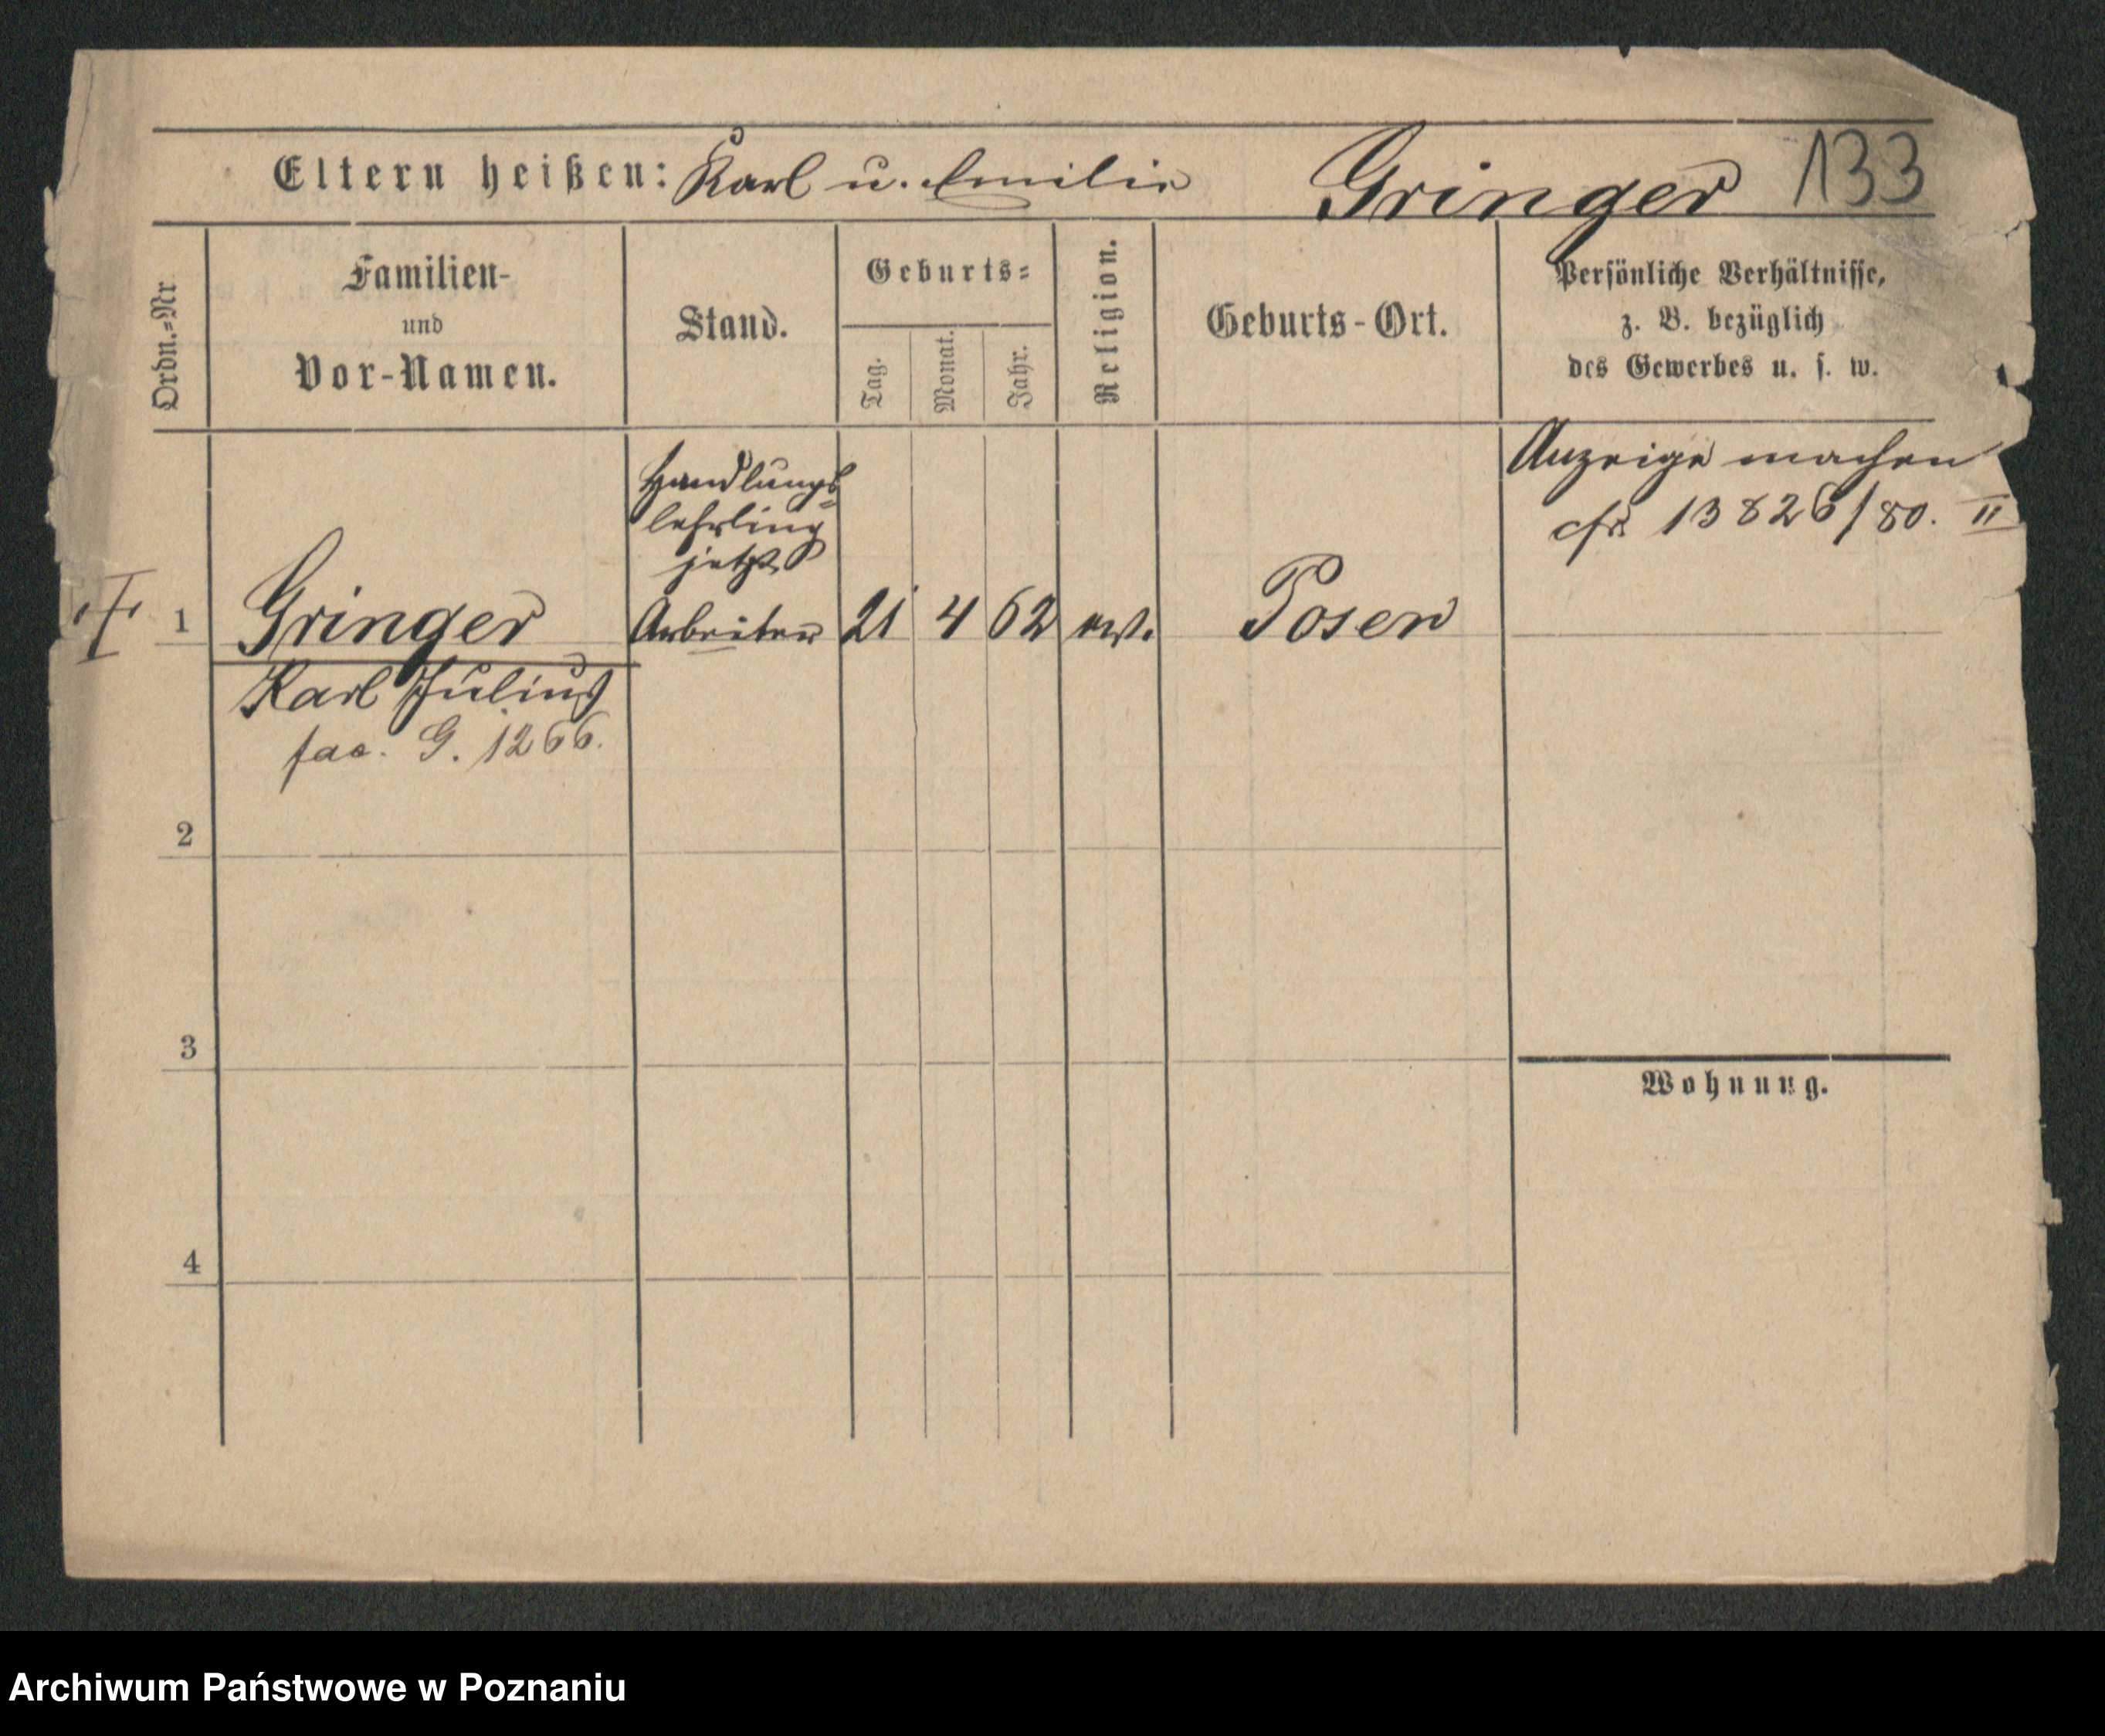 Eltern heißen: Karl u. Emilie Gringer 133
Ordn.=Nr
Familien-
und
Vor-Namen.
Stand.
Geburts=
Tag.
Monat.
Jahr.
Religion.
Geburts-Ort.
Persönliche Verhältnisse,
z. B. bezüglich
des Gewerbes u. s. w.
Anzeige machen
cfr 13826/80. II
Handlungs=
lehrling
jetzt
1 Gringer Arbeiter 21 4 62 ev. Posen
Karl Julius
fac. G. 1266.
2
3
Wohnung.
4
Archiwum Państwowe w Poznaniu